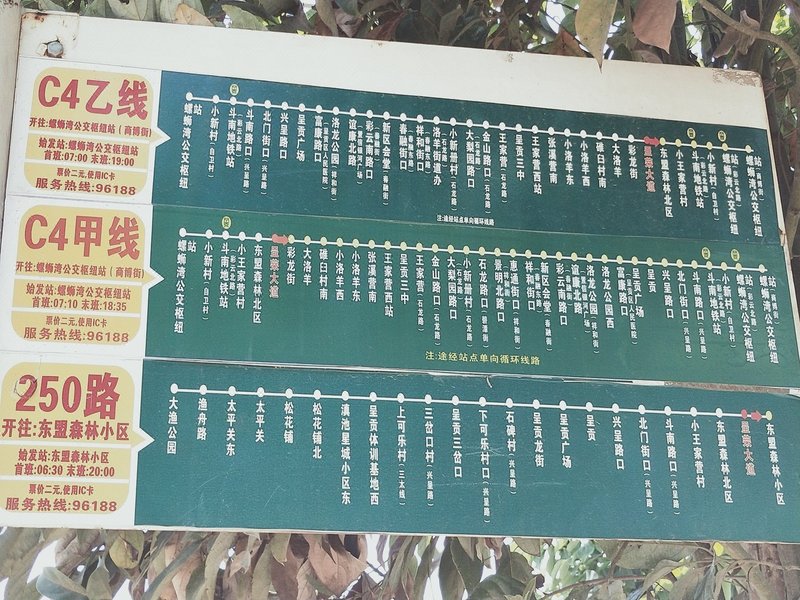 C4乙线
开往:螺蛳湾公交枢纽站(商博街)
始发站:螺蛳湾公交枢纽站
首班:07:00 末班:19:00
票价二元,使用IC卡
服务热线:96188
螺蛳湾公交枢纽站
小新村(自卫村)
斗南地铁站(彩云北路)
斗南路口(兴呈路)
北门街口(兴呈路)
兴呈路口
呈贡广场
富康路口
洛龙公园
谊康北路
彩云南路口
新区会堂(春融街)
春融街口
祥和街口
洛羊街道办
小新册村(石龙路)
大梨园路口
金山路口(石龙路)
王家营(石龙路)
呈贡三中
王家营西站
张溪营南
小洛羊东
小洛羊西
碓臼村南
大洛羊
彩龙街
呈荣大道
东盟森林北区
小王家营村
斗南地铁站
小新村(自卫村)
螺蛳湾公交枢纽站(彩云北路)
螺蛳湾公交枢纽站(商博街)
注:途经站点单向循环线路
C4甲线
开往:螺蛳湾公交枢纽站(商博街)
始发站:螺蛳湾公交枢纽站
首班:07:10 末班:18:35
票价二元,使用IC卡
服务热线:96188
螺蛳湾公交枢纽站
小新村(自卫村)
斗南地铁站(彩云北路)
小王家营村
东盟森林北区
呈荣大道
彩龙街
大洛羊
碓臼村南
小洛羊西
小洛羊东
张溪营南
王家营西站
呈贡三中
王家营(石龙路)
金山路口(石龙路)
大梨园路口
小新册村(石龙路)
石龙路口(碧潭街)
景明北路口
惠通街口(祥和街)
祥和街口
新区会堂(春融街)
彩云南路口
谊康北路
洛龙公园(祥和街)
洛龙公园西
富康路口
呈贡广场
呈贡
兴呈路口
北门街口(兴呈路)
斗南路口(兴呈路)
斗南地铁站
小新村(自卫村)
螺蛳湾公交枢纽站(彩云北路)
螺蛳湾公交枢纽站(商博街)
注:途经站点单向循环线路
250路
开往:东盟森林小区
始发站:东盟森林小区
首班:06:30 末班:20:00
票价二元,使用IC卡
服务热线:96188
大渔公园
渔舟路
太平关东
太平关
松花铺
松花铺北
滇池星城小区东
呈贡体训基地西
上可乐村(三太线)
三岔口村(兴呈路)
呈贡三岔口
下可乐村(兴呈路)
石碑村(兴呈路)
呈贡龙街
呈贡广场
呈贡
兴呈路口
北门街口(兴呈路)
斗南路口(兴呈路)
小王家营村
东盟森林北区
呈荣大道
东盟森林小区